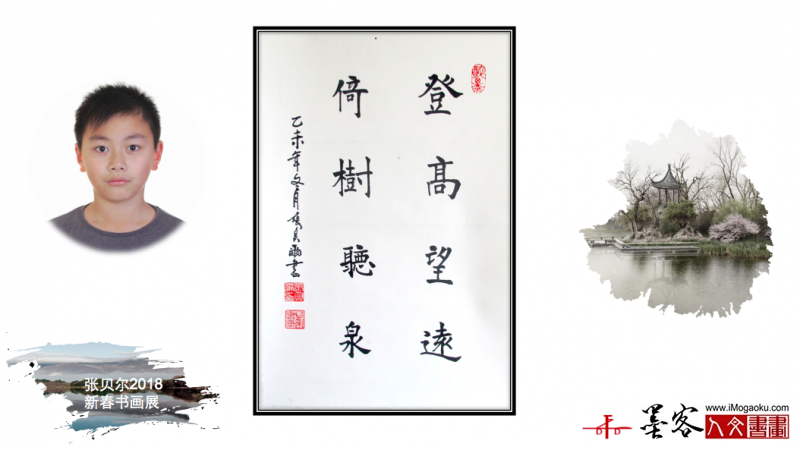 登高望遠
倚樹聽泉
乙未年冬月張貝爾書
张贝尔2018
新春书画展
墨客
www.iMogaoku.com
人文書畫